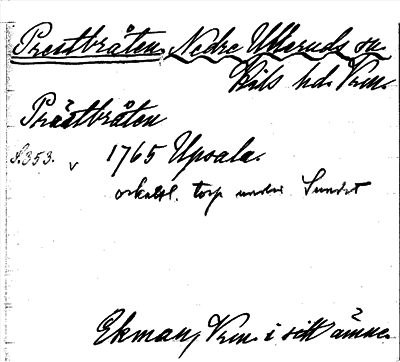 Prestbråten Nedre Ulleruds sn.
Kils hd. Vrm.
Prästbråten
S. 353. v 1765 Upsala.
torp under Sundet
Ekman, Vrm. i sitt ämne.